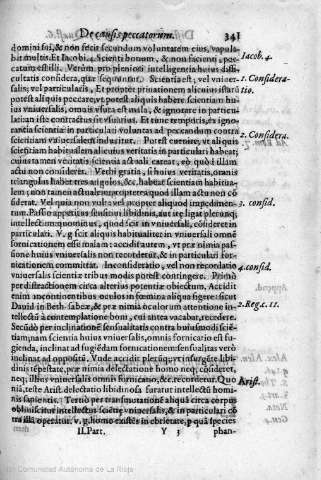 De causis peccatorum. 341
domini sui, & non fecit secundum voluntatem eius, vapula-
bit multis. Et Iacobi. 4. Scienti bonum, & non facienti, pec-
catum est illi. Verùm pro pleniori intelligentia huius diffi-
cultatis considera, quæ sequuntur. Scientia est, vel vniuer-
salis, vel particularis, Et propter priuationem alicuius istarū
potest aliquis peccare, vt potest aliquis habere scientiam hu-
ius vniuersalis, omnis vsura est mala, & ignorare in particu-
lari an iste contractus sit vsurarius. Et tunc temporis, ex igno-
rantia scientiæ in particulari voluntas ad peccandum contra
scientiam vniuersalem inducitur. Potest euenire, vt aliquis
scientiam habitualem alicuius veritatis in particulari habeat;
cuius tamen veritatis scientia actuali careat, eò quòd illam
actu non consideret. Verbi gratia, si huius veritatis, omnis
triangulus habet tres angulos, &c, habeat scientiam habitua-
lem; non tamen actualem, propterea quod illam actu non cō
siderat. Vel quia non vult: vel propter aliquod impedimen-
tum. Passio appetitus sensitiui libidinis, aut iræ ligat plerunq;
intellectum; quominus, quod scit in vniuersali, cōsideret in
particulari. V. g scit aliquis habitualiter in vniuersali omnē
fornicationem esse malam: accidit autem, vt præ nimia pas-
sione huius vniuersalis non recordetur, & in particulari for-
nicationem committat. Inconsideratio, vel non recordatio
vniuersalis scientiæ tribus modis potest contingere. Primò
per distractionem circa alterius potentiæ obiectum. Accidit
enim incontinentibus oculos in fœmina aliqua figere: sicut
Dauid in Beth-sabee, & præ nimia oculorum attentione in-
tellectū à contemplatione boni, cui antea vacabat, recedere.
Secūdò per inclinationē sensualitatis contra huiusmodi sciē-
tiam; nam scientia huius vniuersalis, omnis fornicatio est fu-
gienda, inclinat ad fugiēdam fornicationem: sensualitas verò
inclinat ad oppositū. Vnde accidit plerūq; vt insurgēte libi-
dinis tēpestate, præ nimia delectatione homo neq; cōsideret,
neq; illius vniuersalis omnis fornicatio, &c. recordetur. Quo
niā, teste Arist. delectatio libidinosa furatur intellectū homi-
nis sapientis. Tertiò per transmutationē aliquā circa corpus
obliuiscitur intellectus scientiæ vniuersalis, & in particulari cō
tra illā operatur. v. g. homo existēs in ebrietate, p quā species
II. Part. Y 3 phan-
Iacob. 4.
1. Considera-
tio.
2. Considera.
3. consid.
4. consid.
2. Reg. c. 11.
Arist.
(c) Comunidad Autónoma de La Rioja